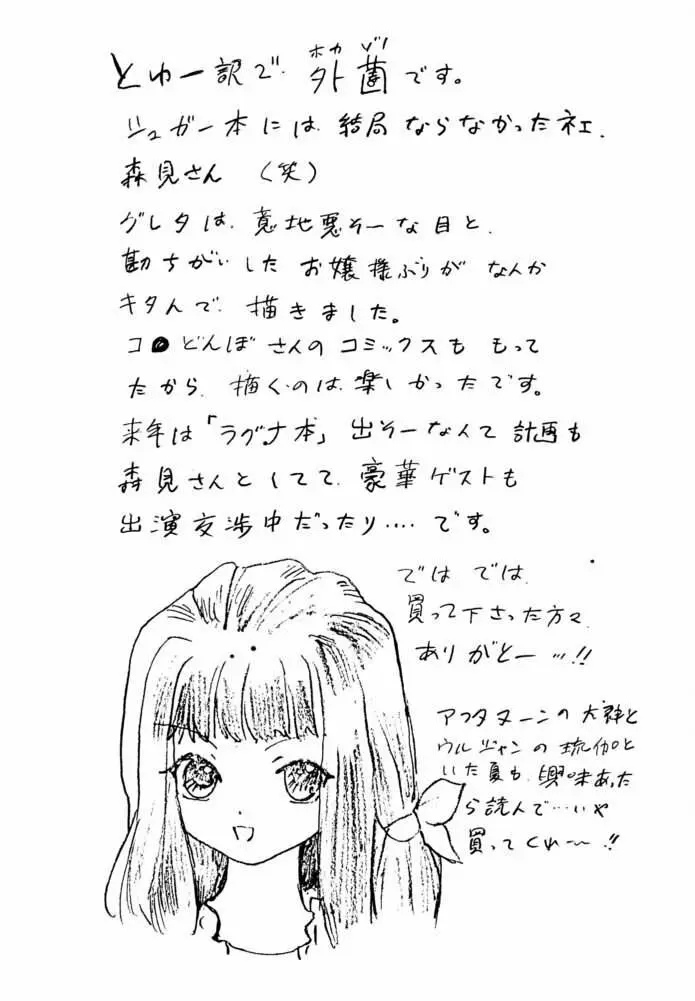 ホカ ゾノ
とゆー訳で、外薗です。
シュガー本には、結局ならなかったネェ、
森見さん (笑)
グレタは、意地悪そーな目と、
勘ちがいしたお嬢様ぶりがなんか
キタんで、描きました。
コ●どんぼさんのコミックスももって
たから、描くのは、楽しかったです。
来年は「ラグナ本」出そーなんて計画も
森見さんとしてて、豪華ゲストも
出演交渉中だったり‥‥です。
では では、
買って下さった方々、
ありがとー ‥‥!!
アフタヌーンの犬神と
ウルジャンの琉伽と
いた夏も、興味あった
ら読んで‥‥いや
買ってくれ〜〜!!